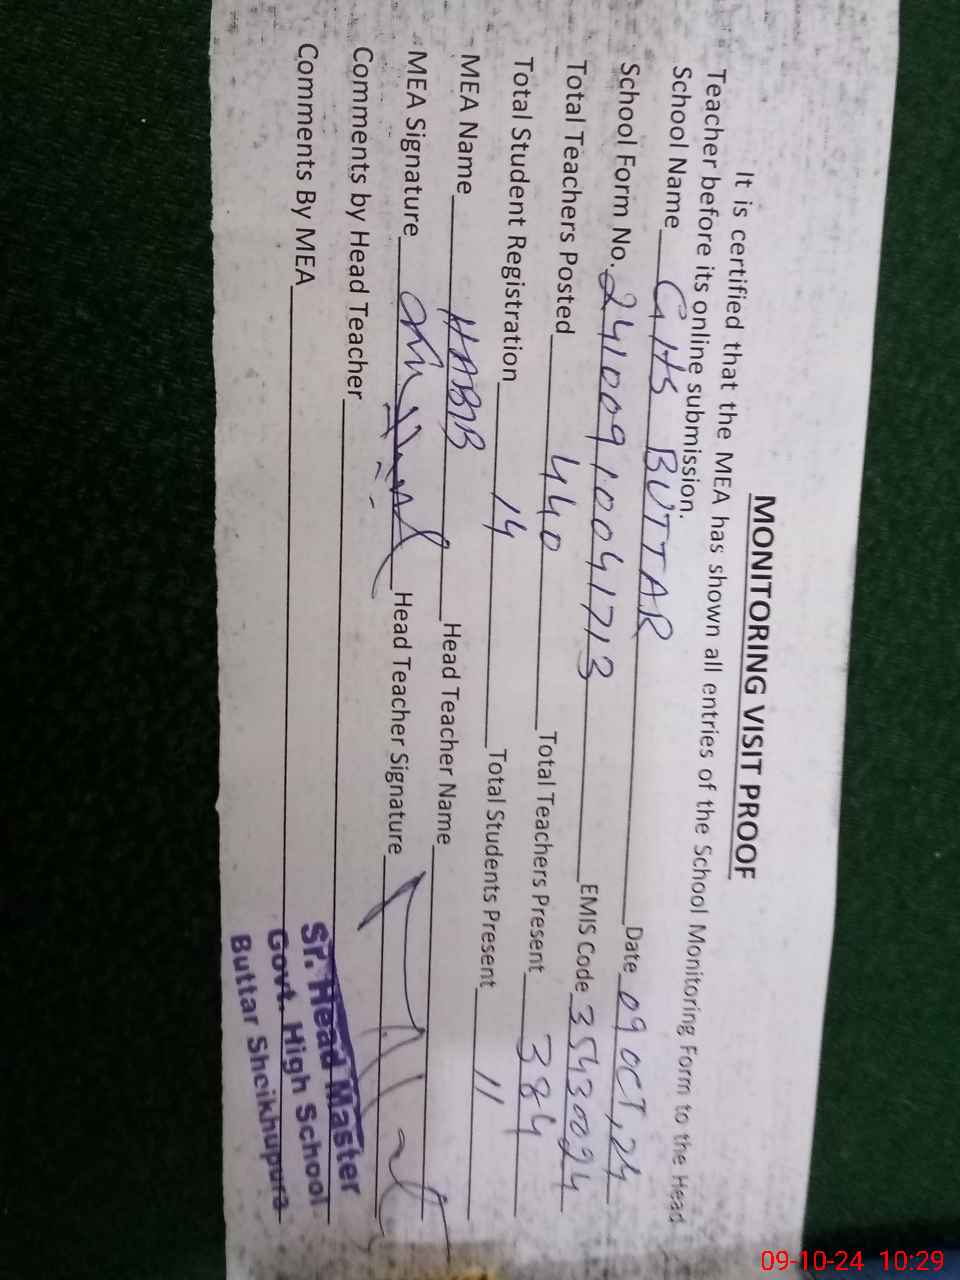 MONITORING VISIT PROOF
It is certified that the MEA has shown all entries of the School Monitoring Form to the Head
Teacher before its online submission.
School Name GHS BUTTAR Date 09 OCT, 24
School Form No. 24100910041713 EMIS Code 35430094
Total Teachers Posted 440 Total Teachers Present 384
Total Student Registration 14 Total Students Present 11
MEA Name HABIB Head Teacher Name
MEA Signature Head Teacher Signature
Comments by Head Teacher
Comments By MEA
Sr. Head Master
Govt. High School
Buttar Sheikhupura
09-10-24 10:29